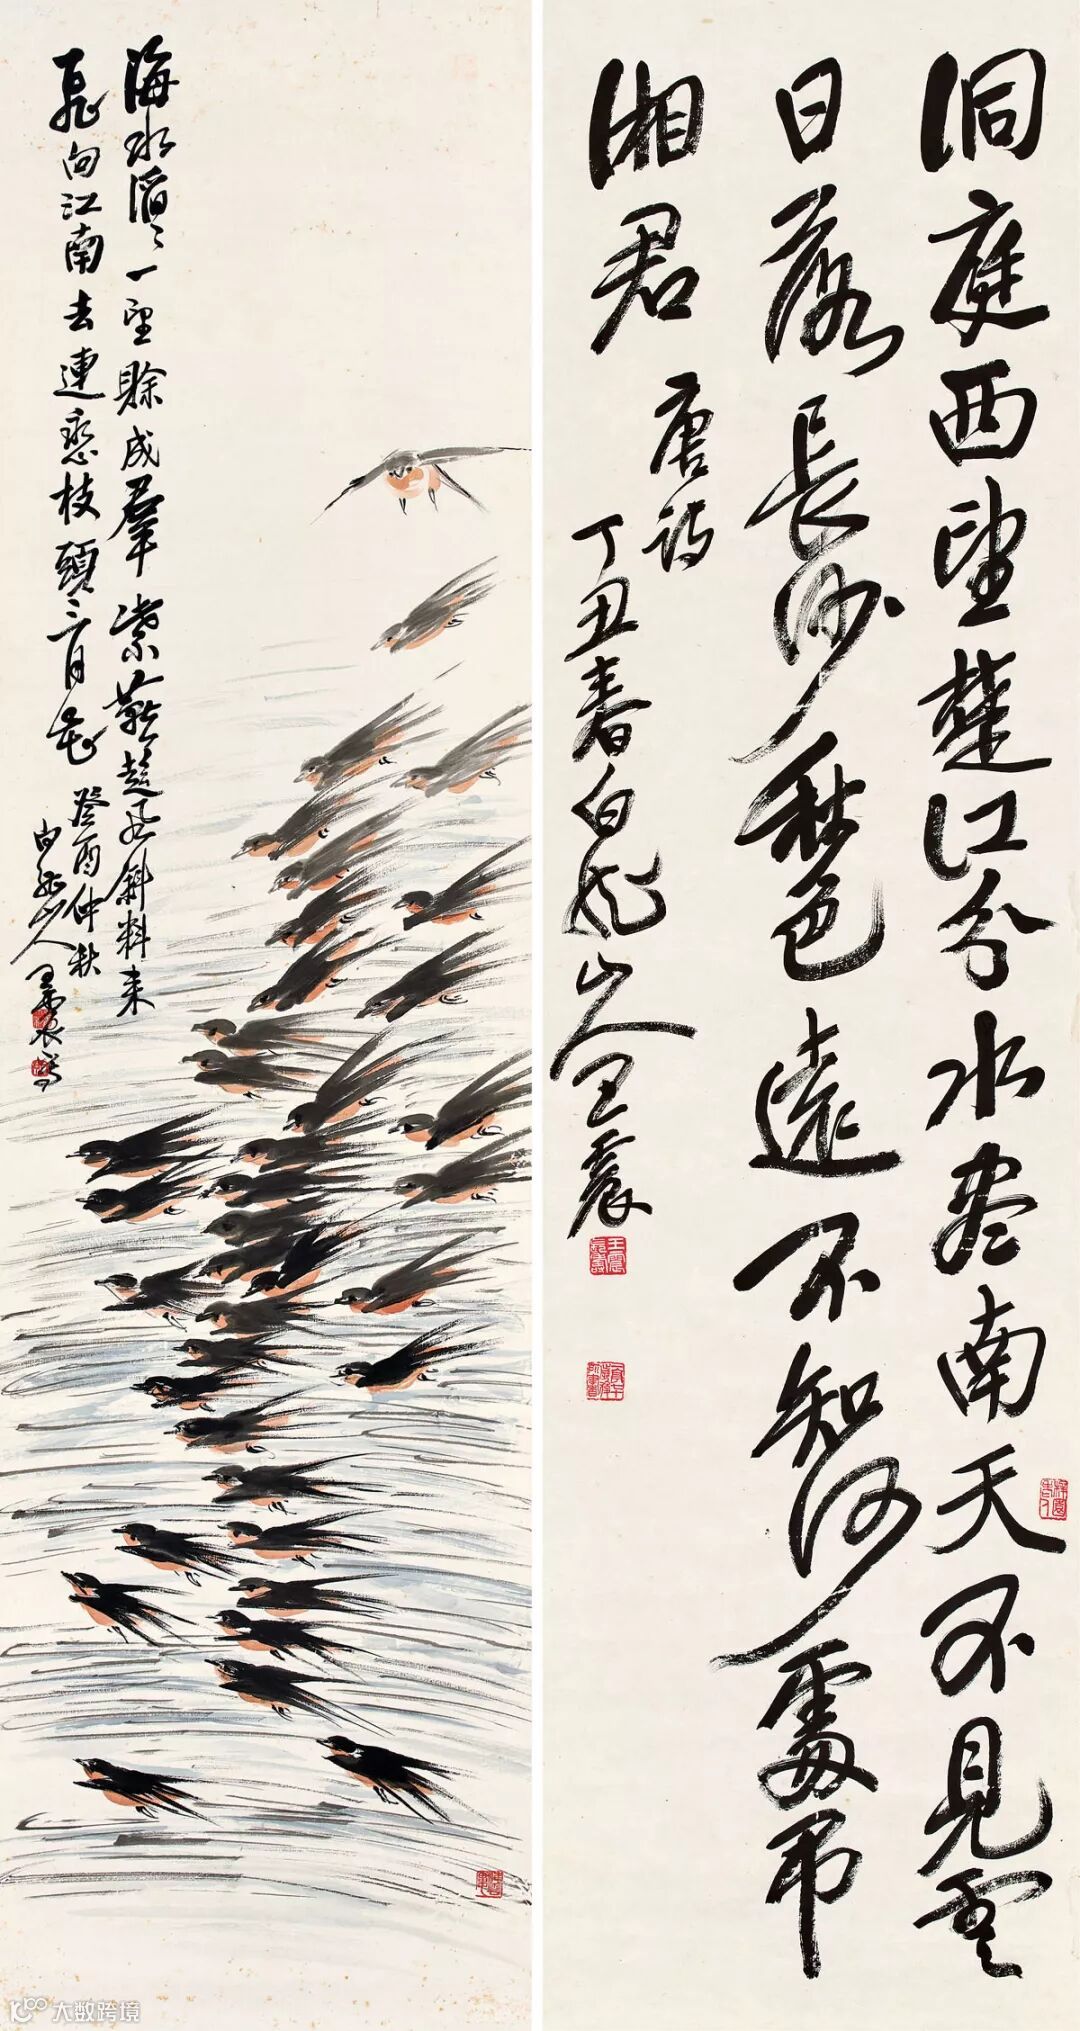 洞庭西望楚江分水盡南天不見雲
日落長沙秋色遠不知何處弔
湘君
唐詩
丁丑春白龍山人王震
海水滔〻一望賒成羣紫燕趁風斜料来
飛向江南去連戀枝頭三月花
癸酉仲秋
白龍山人王震寫
大数跨境